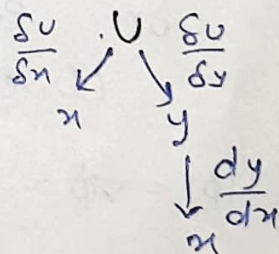 δU/δx U δU/δy
x y
dy/dx
x